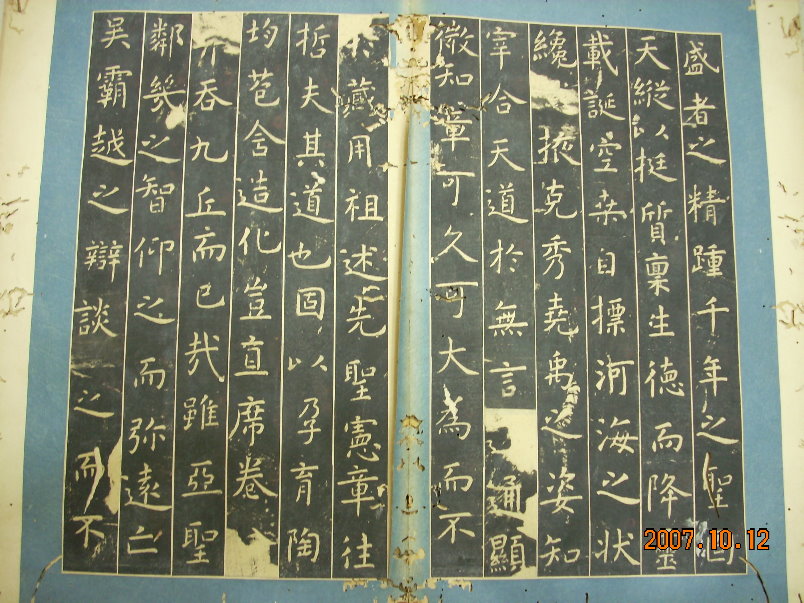 盛者之精踵千年之聖固
天縱以挺質稟生德而降靈
載誕空桑自摽河海之狀
纔掖克秀堯禹之姿知
宰合天道於無言通顯
微知章可久可大為而不
於藏用祖述先聖憲章往
哲夫其道也固以孕育陶
均苞含造化豈直席卷
并吞九丘而已哉雖亞聖
鄰幾之智仰之而弥遠亡
吳霸越之辯談之而不
2007.10.12